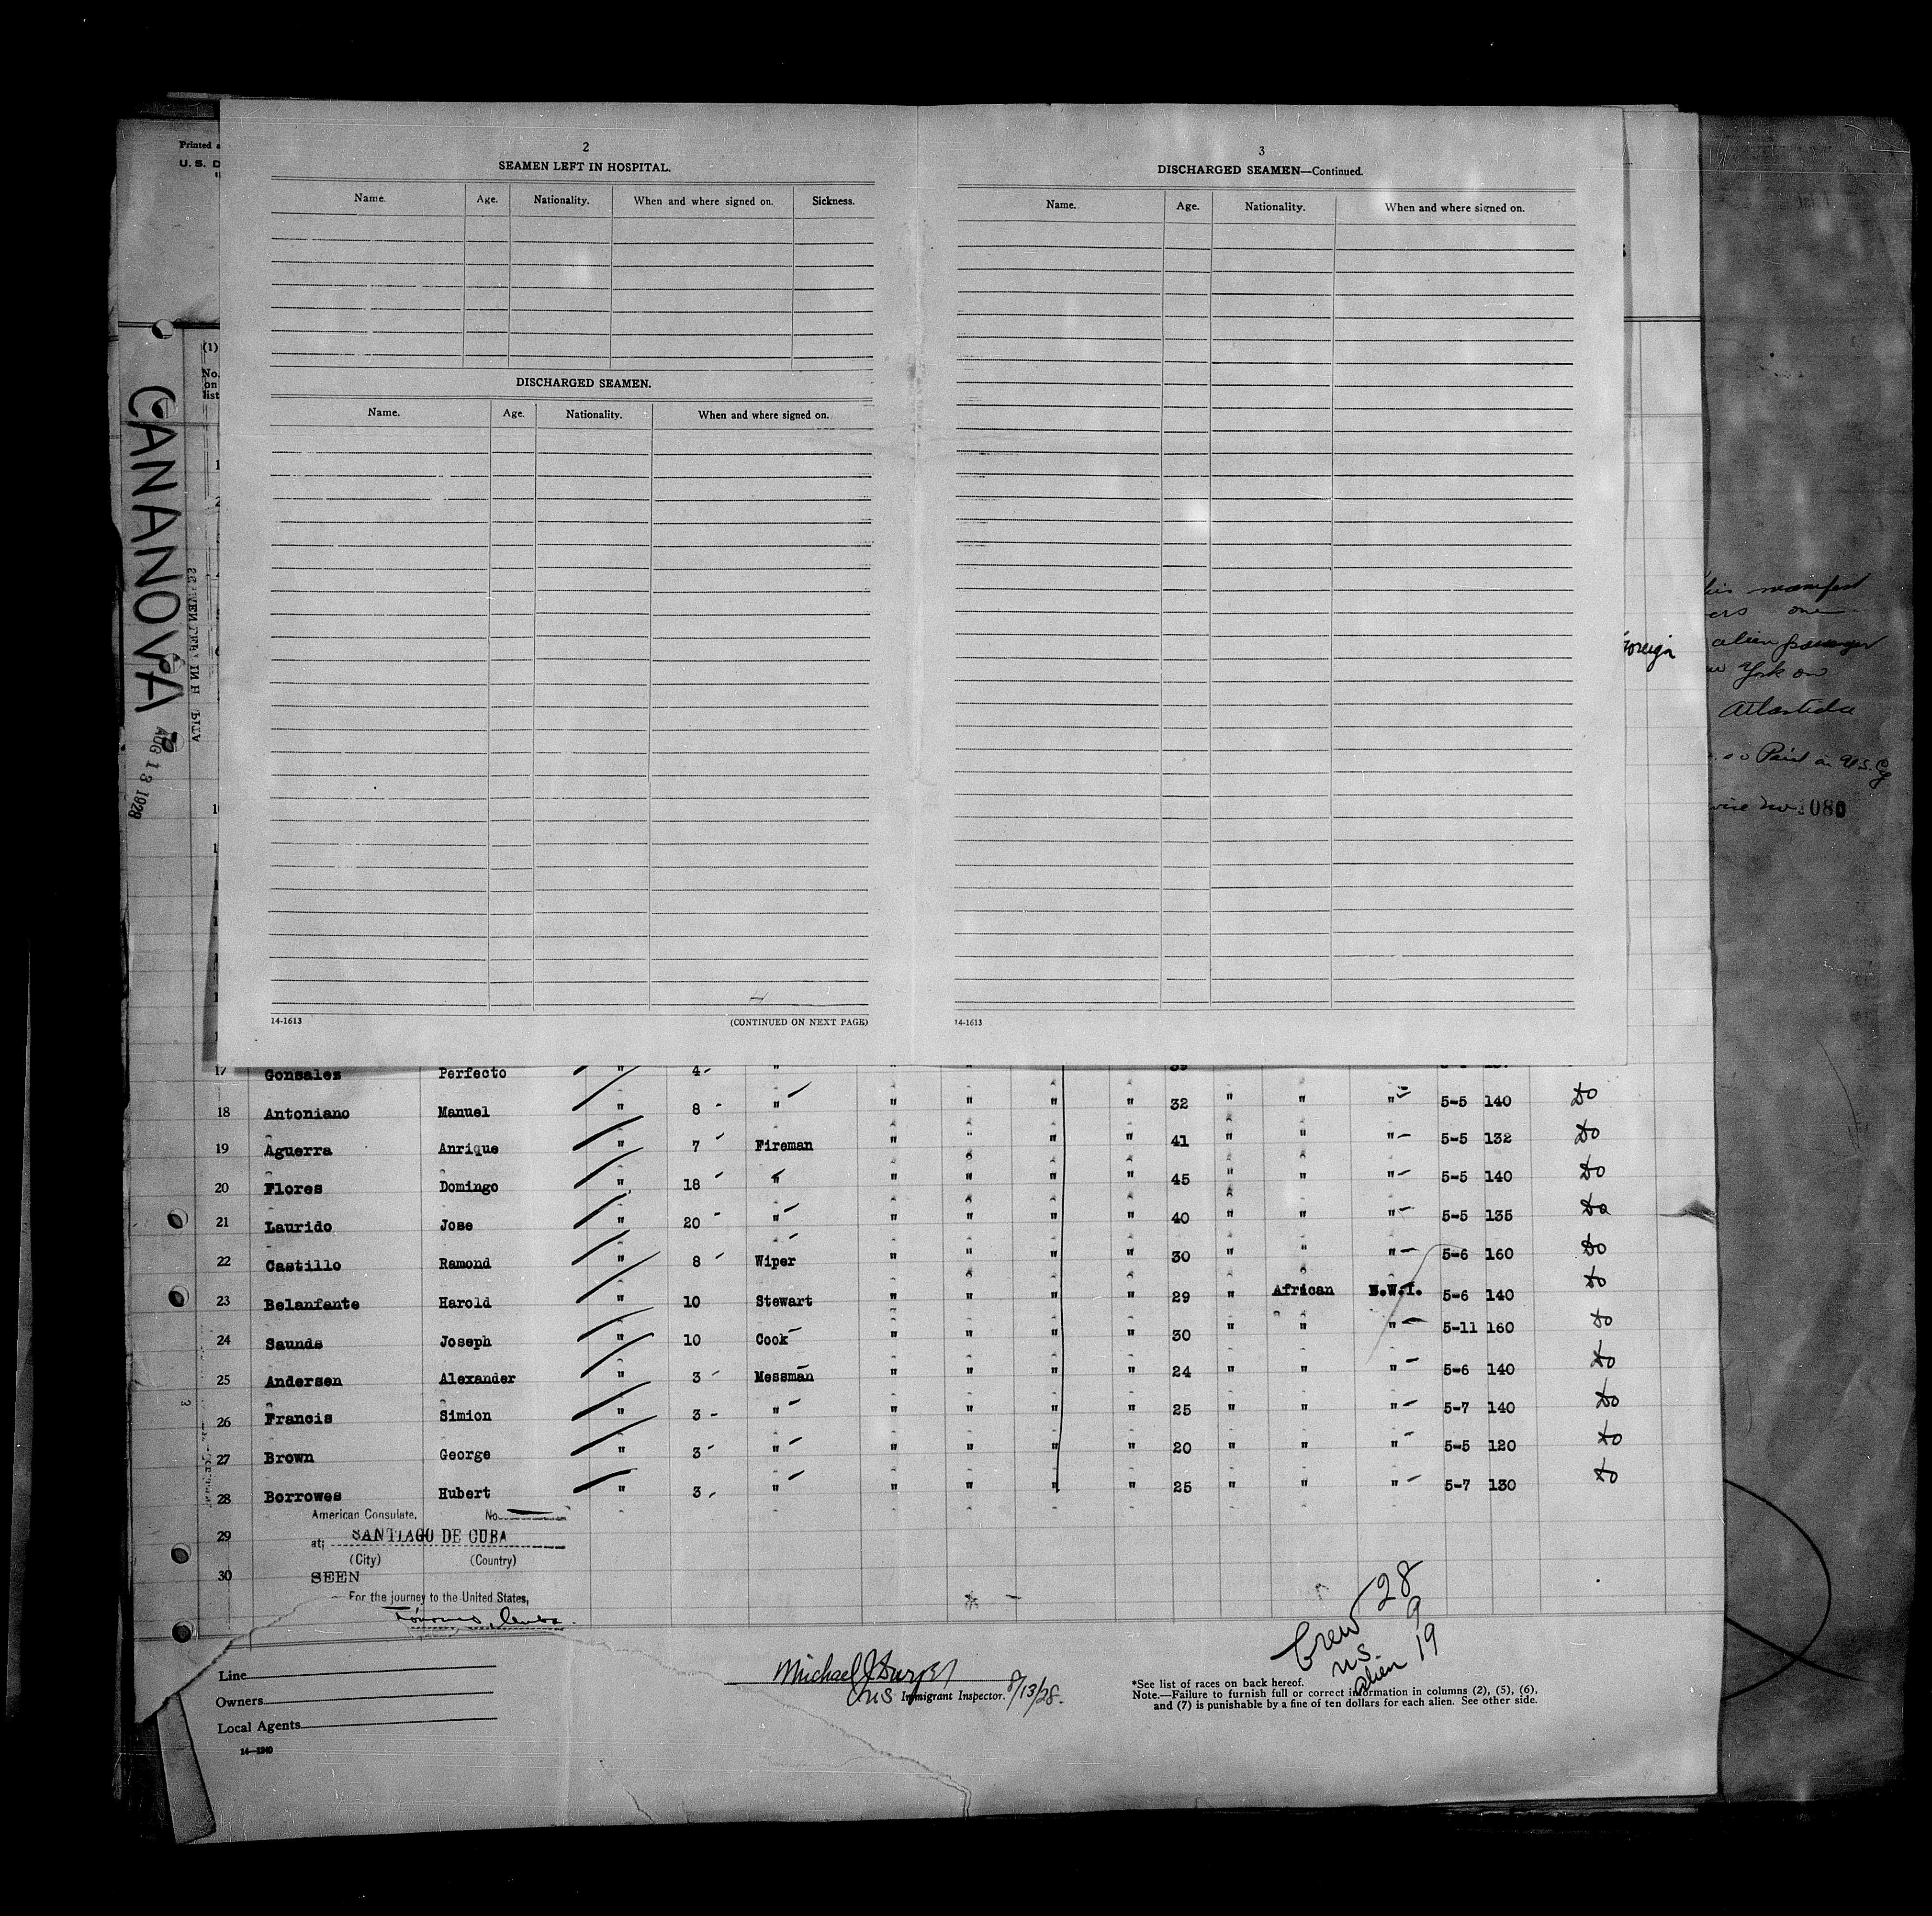 Printed
U. S. D
2
SEAMEN LEFT IN HOSPITAL.
Name. Age. Nationality. When and where signed on. Sickness.
DISCHARGED SEAMEN.
Name. Age. Nationality. When and where signed on.
14-1613 (CONTINUED ON NEXT PAGE)
3
DISCHARGED SEAMEN—Continued.
Name. Age. Nationality. When and where signed on.
14-1613
(1)
No. on list
CANANOVA
AUG 13 1928
Foreign
his manifest
ers one
alien passenger
w York on
Atlantida
Paid in U.S. Cy
080
17 Gonsales Perfecto " 4 " " " " " 39
18 Antoniano Manuel " 8 " " " " " 32 " " " 5-5 140 do
19 Aguerra Anrique " 7 Fireman " " " " 41 " " " 5-5 132 do
20 Flores Domingo " 18 " " " " " 45 " " " 5-5 140 do
21 Laurido Jose " 20 " " " " " 40 " " " 5-5 135 do
22 Castillo Ramond " 8 Wiper " " " " 30 " " " 5-6 160 do
23 Belanfante Harold " 10 Stewart " " " " 29 " African B.W.I. 5-6 140 do
24 Saunds Joseph " 10 Cook " " " " 30 " " " 5-11 160 do
25 Andersen Alexander " 3 Messman " " " " 24 " " " 5-6 140 do
26 Francis Simion " 3 " " " " " 25 " " " 5-7 140 do
27 Brown George " 3 " " " " " 20 " " " 5-5 120 do
28 Borrowes Hubert " 3 " " " " " 25 " " " 5-7 130 do
29
30
American Consulate, No.
at; SANTIAGO DE CUBA
(City) (Country)
SEEN
For the journey to the United States,
Crew 28
US 9
alien 19
Line
Owners
Local Agents
14-1240
Michael J
Immigrant Inspector. 8/13/28.
*See list of races on back hereof.
Note.—Failure to furnish full or correct information in columns (2), (5), (6),
and (7) is punishable by a fine of ten dollars for each alien. See other side.